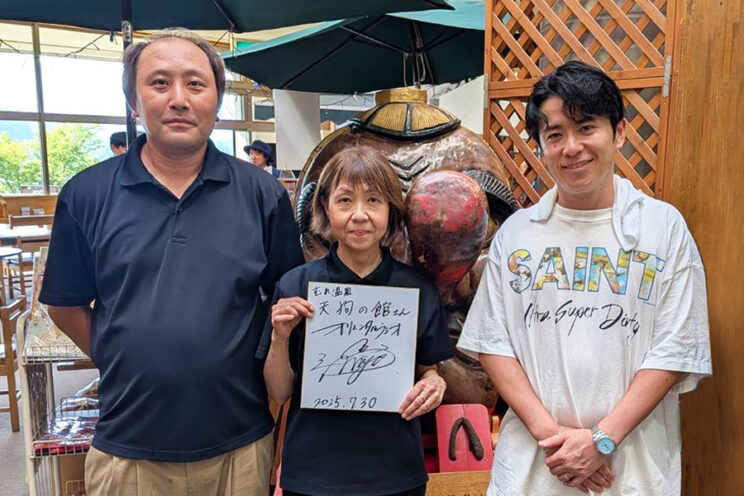 むれ温泉
天狗の館さん
オリエンタルラジオ
2025.7.30
SAINT
Mxxxxxx
Super Dirty